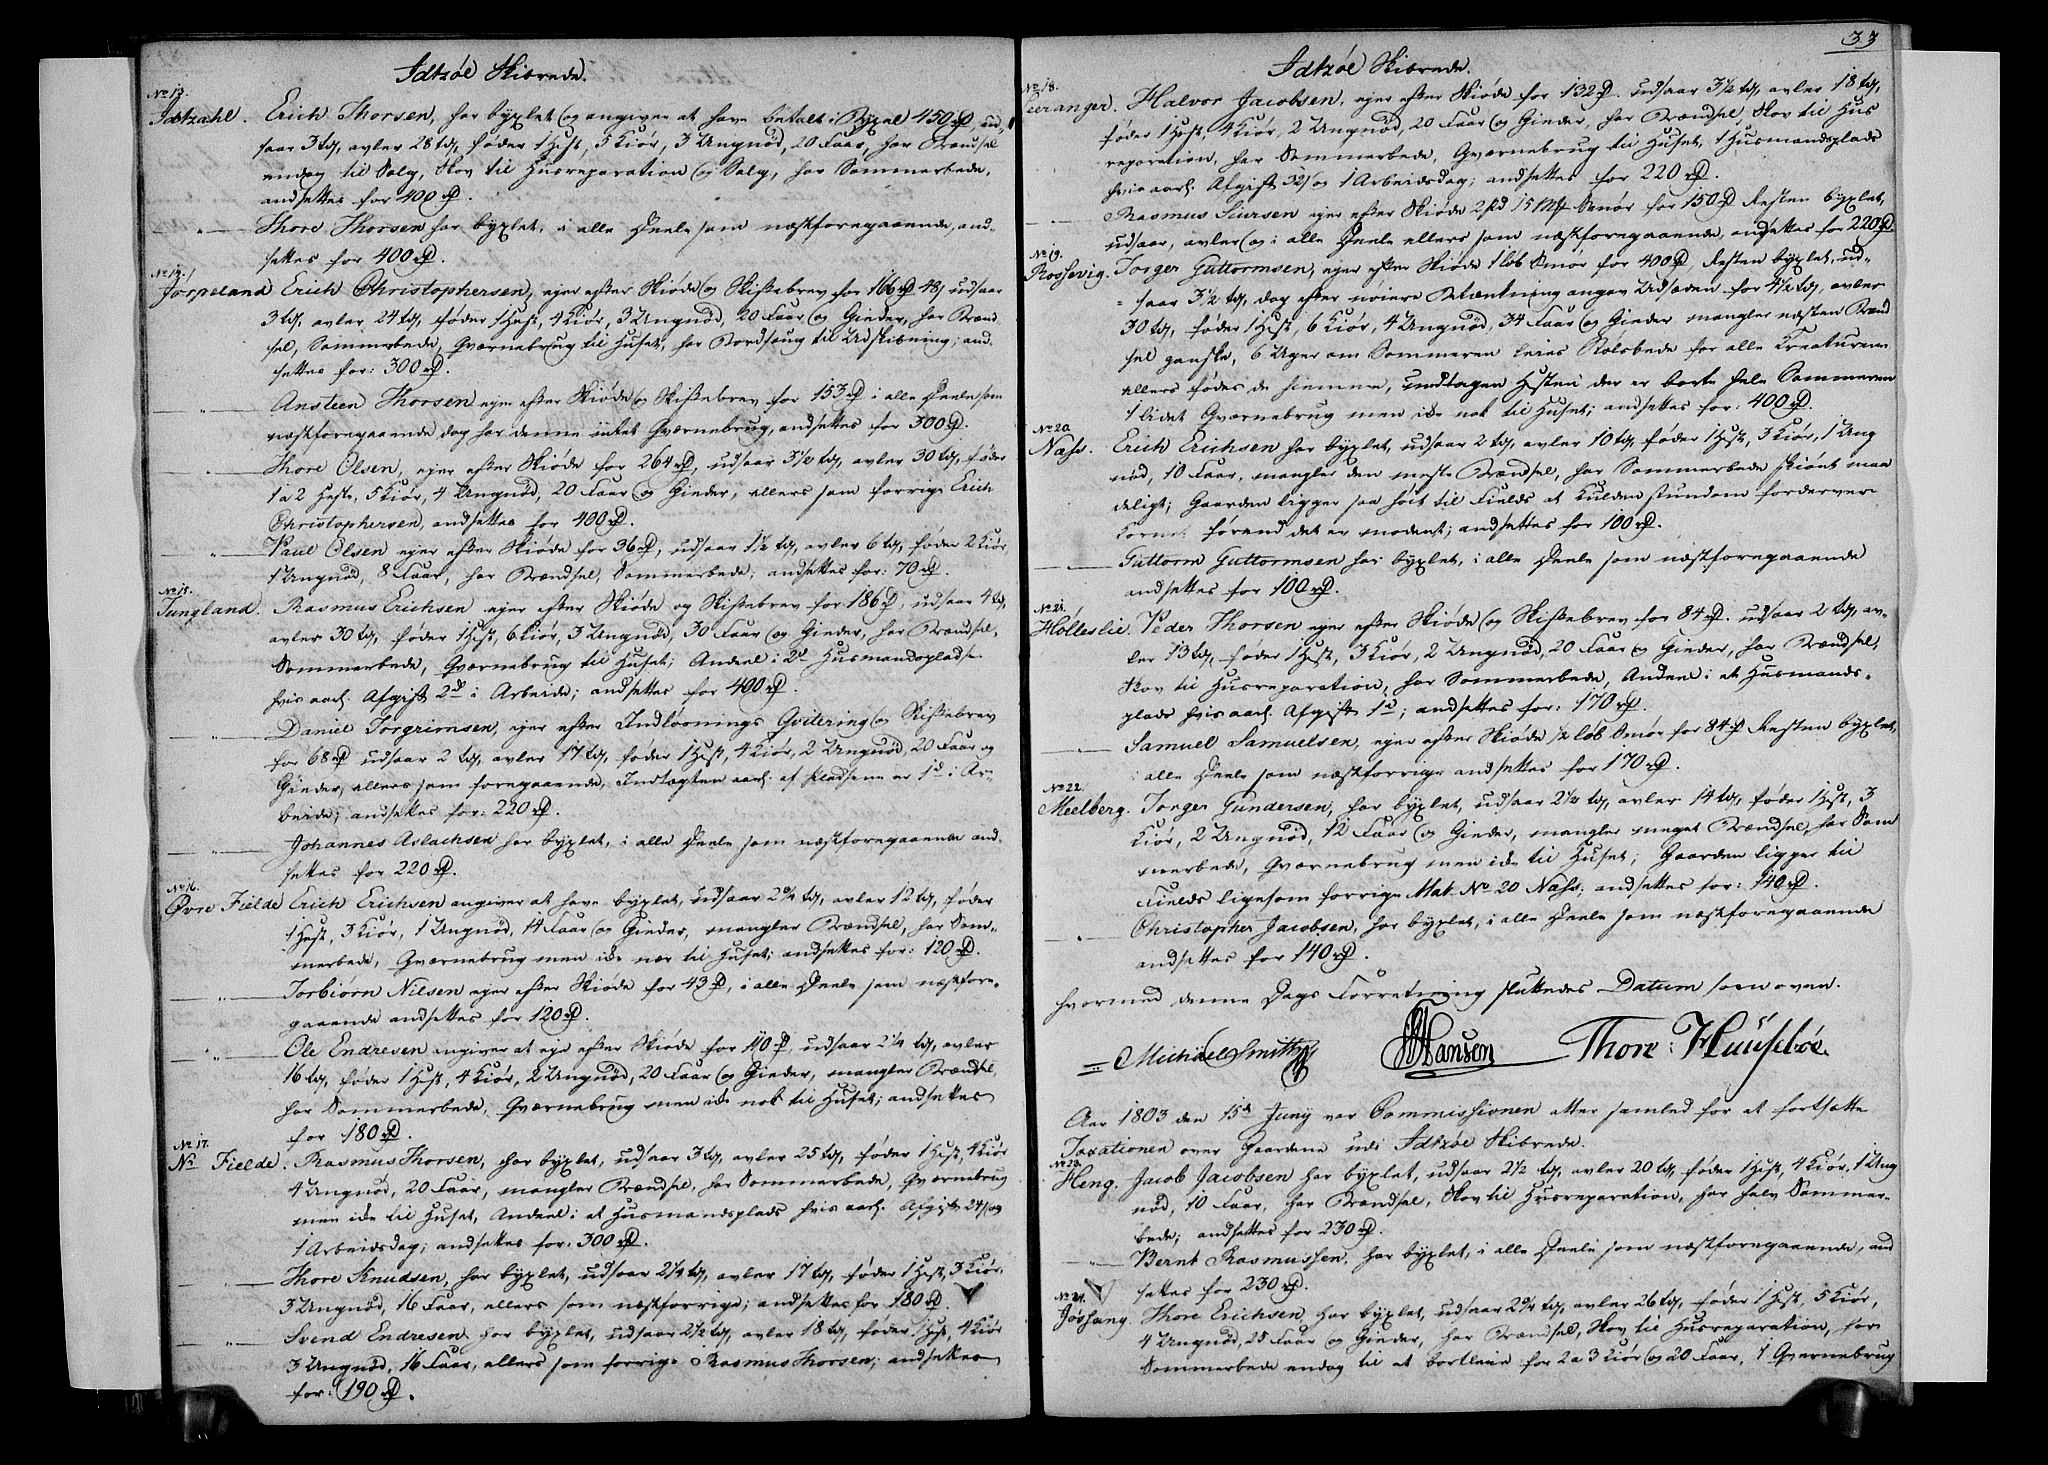 Idtzøe Skibrede.
No 13.
Idtzæhl. Erich Thorsen, har byxlet og angiver at have betalt i Byxel 450 rd, ud-
saar 3 td, avler 28 td, føder 1 Hest, 5 Kiør, 3 Ungnød, 20 Faar, har Brændsel
endog til Salg, Skov til Husreparation og Salg, har Sommerbede,
andsettes for 400 rd.
" Thore Thorsen har byxlet, i alle Deele som næstforegaaende, and-
settes for 400 rd.
No 14.
Jørpeland Erich Christophersen, ejer efter Skiøde og Skiftebrev for 166 rd 48 s udsaar
3 td, avler 24 td, føder 1 Hest, 4 Kiør, 3 Ungnød, 20 Faar og Gieder, har Brænd
sel, Sommerbede, Qværnebrug til Huset, har Bordsaug til Udskibning; and
settes for: 300 rd.
" Ansteen Thorsen ejer efter Skiøde og Skiftebrev for 153 rd i alle Deele som
næstforegaaende dog har denne intet Qværnebrug, andsettes for 300 rd.
" Thore Olsen, ejer efter Skiøde for 264 rd, udsaar 3 1/2 td, avler 30 td, føder
1 a 2 Heste, 5 Kiør, 4 Ungnød, 20 Faar og Gieder, ellers som forrige Erich
Christophersen, andsettes for 400 rd.
" Paul Olsen ejer efter Skiøde for 36 rd, udsaar 1 1/2 td, avler 6 td, føder 2 Kiør
1 Ungnød, 8 Faar, har Brændsel, Sommerbede; andsettes for: 70 rd.
No 15.
Tungland. Rasmus Erichsen ejer efter Skiøde og Skiftebrev for 186 rd, udsaar 4 td,
avler 30 td, føder 1 Hest, 6 Kiør, 3 Ungnød, 30 Faar og Gieder, har Brændsel,
Sommerbede, Qværnebrug til Huset; Andeel i 2de Husmandspladse
hvis aarl. Afgift 2 d i Arbeide; andsettes for 400 rd.
" Daniel Torgrimsen, ejer efter Indløsnings Qvitering og Skiftebrev
for 68 rd udsaar 2 td, avler 17 td, føder 1 Hest, 4 Kiør, 2 Ungnød, 20 Faar og
Gieder, ellers som foregaaende, Indtægten aarl. af Pladsene er 1 d i Ar-
beide; andsettes for: 220 rd.
" Johannes Aslachsen har byxlet, i alle Deele som næstforegaaende and-
settes for 220 rd.
No 16.
Øvre Fielde Erich Erichsen angiver at have byxlet, udsaar 2 1/4 td, avler 12 td, føder
1 Hest, 3 Kiør, 1 Ungnød, 14 Faar og Gieder, mangler Brændsel, har Som-
merbede, Qværnebrug men ike nær til Huset; andsettes for: 120 rd.
" Torbiørn Nilsen ejer efter Skiøde for 43 rd, i alle Deele som næstfore-
gaaende andsettes for 120 rd.
" Ole Endresen angiver at eje efter Skiøde for 110 rd, udsaar 2 1/4 td, avler
16 td, føder 1 Hest, 4 Kiør, 2 Ungnød, 20 Faar og Gieder, mangler Brændsel,
har Sommerbede, Qværnebrug men ike nok til Huset; andsettes
for 180 rd.
No 17.
Ne Fielde. Rasmus Thorsen, har byxlet, udsaar 3 td, avler 25 td, føder 1 Hest, 4 Kiør
4 Ungnød, 20 Faar, mangler Brændsel, har Sommerbede, Qværnebrug
men ike til Huset, Andeel i et Husmandsplads hvis aarl. Afgift 24 s og
1 Arbeidsdag; andsettes for: 300 rd.
" Thore Knudsen, har byxlet, udsaar 2 1/4 td, avler 17 td, føder 1 Hest, 3 Kiør,
3 Ungnød, 16 Faar, ellers som næstforrige; andsettes for 180 rd.
" Svend Endresen har byxlet, udsaar 2 1/2 td, avler 18 td, føder 1 Hest, 4 Kiør
3 Ungnød, 16 Faar, ellers som forrige Rasmus Thorsen; andsettes
for: 190 rd.
33
Idtzøe Skibrede.
No 18.
Leeranger. Halvor Jacobsen, ejer efter Skiøde for 132 rd. udsaar 3 1/2 td, avler 18 td,
føder 1 Hest, 4 Kiør, 2 Ungnød, 20 Faar og Gieder, har Brændsel, Skov til Hus
reparation, har Sommerbede, Qværnebrug til Huset, 1 Husmandsplads
hvis aarl. Afgift 32 s og 1 Arbeidsdag; andsettes for 220 rd.
" Rasmus Siursen ejer efter Skiøde 2 pd 15 Mk Smør for 150 rd Resten byxlet,
udsaar, avler og i alle Deele ellers som næstforegaaende, andsettes for 220 rd
No 19.
Rossevig. Torger Guttormsen, ejer efter Skiøde 1 Løb Smør for 400 rd, Resten byxlet, ud-
saar 3 1/2 td, dog efter nøiere Betænkning angav Udsæden for 4 1/2 td, avler
30 td, føder 1 Hest, 6 Kiør, 4 Ungnød, 34 Faar og Gieder mangler næsten Brænd
sel ganske, 6 Uger om Sommeren leies Stølsbede for alle Kreaturene
ellers fødes de hiemme, undtagen Hesten der er borte hele Sommeren
1 lidet Qværnebrug men ike nok til Huset; andsettes for: 400 rd.
No 20.
Næss. Erich Erichsen har byxlet, udsaar 2 td, avler 10 td, føder 1 Hest, 3 Kiør, 1 Ung
nød, 10 Faar, mangler den meste Brændsel, har Sommerbede skiønt maa
deligt; Gaarden ligger saa høit til Fields at Kulden stundom forderver
Kornet førend det er modent; andsettes for 100 rd.
" Guttorm Guttormsen har byxlet, i alle Deele som næstforegaaende
andsettes for 100 rd.
No 21.
Hølleslie. Peder Thorsen ejer efter Skiøde og Skiftebrev for 84 rd. udsaar 2 td, av-
ler 13 td, føder 1 Hest, 3 Kiør, 2 Ungnød, 20 Faar og Gieder, har Brændsel,
Skov til Husreparation, har Sommerbede, Andeel i et Husmands-
plads hvis aarl. Afgift 1 d; andsettes for: 170 rd.
" Samuel Samuelsen, ejer efter Skiøde 1/2 Løb Smør for 84 rd Resten byxlet,
i alle Deele som næstforrige andsettes for 170 rd.
No 22.
Meelberg. Torger Gundersen, har byxlet, udsaar 2 1/2 td, avler 14 td, føder 1 Hest, 3
Kiør, 2 Ungnød, 12 Faar og Gieder, mangler meget Brændsel, har Som
merbede, Qværnebrug men ike til Huset; Gaarden ligger til
Fields ligesom forrige Mat. No 20 Næss; andsettes for: 140 rd.
" Christopher Jacobsen, har byxlet, i alle Deele som næstforegaaende
andsettes for 140 rd.
hvormed denne Dags Forretning sluttedes Datum som oven.
Michael Smith Hansen Thore Huusebøe.
Aar 1803 den 15d Juny var Commissionen atter samled for at fortsætte
Taxationen over Gaardene udi Idtzøe Skibrede.
No 23.
Heng. Jacob Jacobsen har byxlet, udsaar 2 1/2 td, avler 20 td, føder 1 Hest, 4 Kiør, 1 Ung
nød, 10 Faar, har Brændsel, Skov til Husreparation, har halv Sommer-
bede; andsettes for 230 rd.
" Bernt Rasmussen, har byxlet, i alle Deele som næstforegaaende, and
settes for 230 rd.
No 24.
Jøssang. Thore Erichsen har byxlet, udsaar 2 3/4 td, avler 26 td, føder 1 Hest, 5 Kiør,
4 Ungnød, 25 Faar og Gieder, har Brændsel, Skov til Husreparation, har
Sommerbede endog til at bortleie for 2 a 3 Kiør og 20 Faar, 1 Qvernebrug